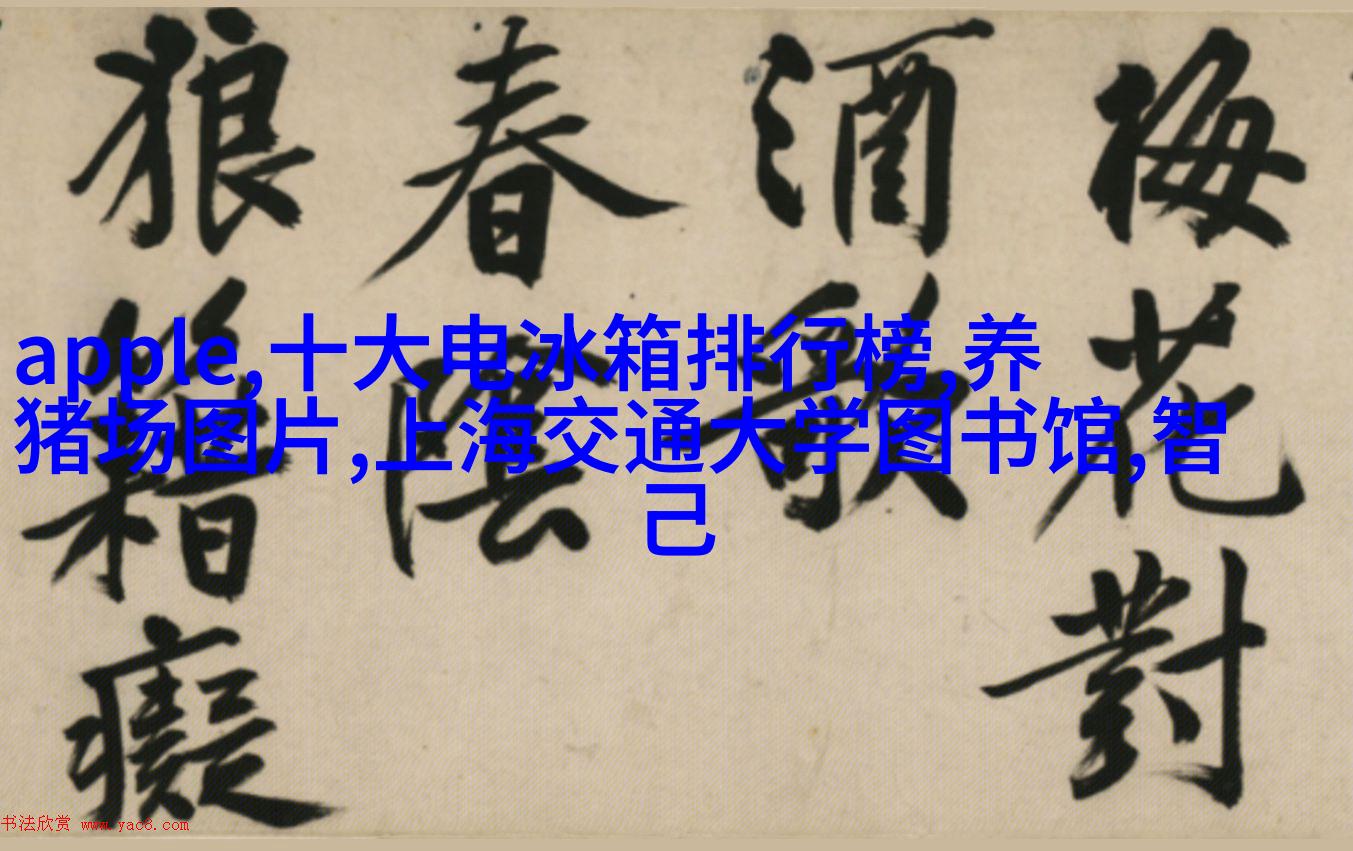 梅花對
酒歌
春陰
狼籍癡
apple,十大电冰箱排行榜,养
猪场图片,上海交通大学图书馆,智
己
书法欣赏 www.yac8.com